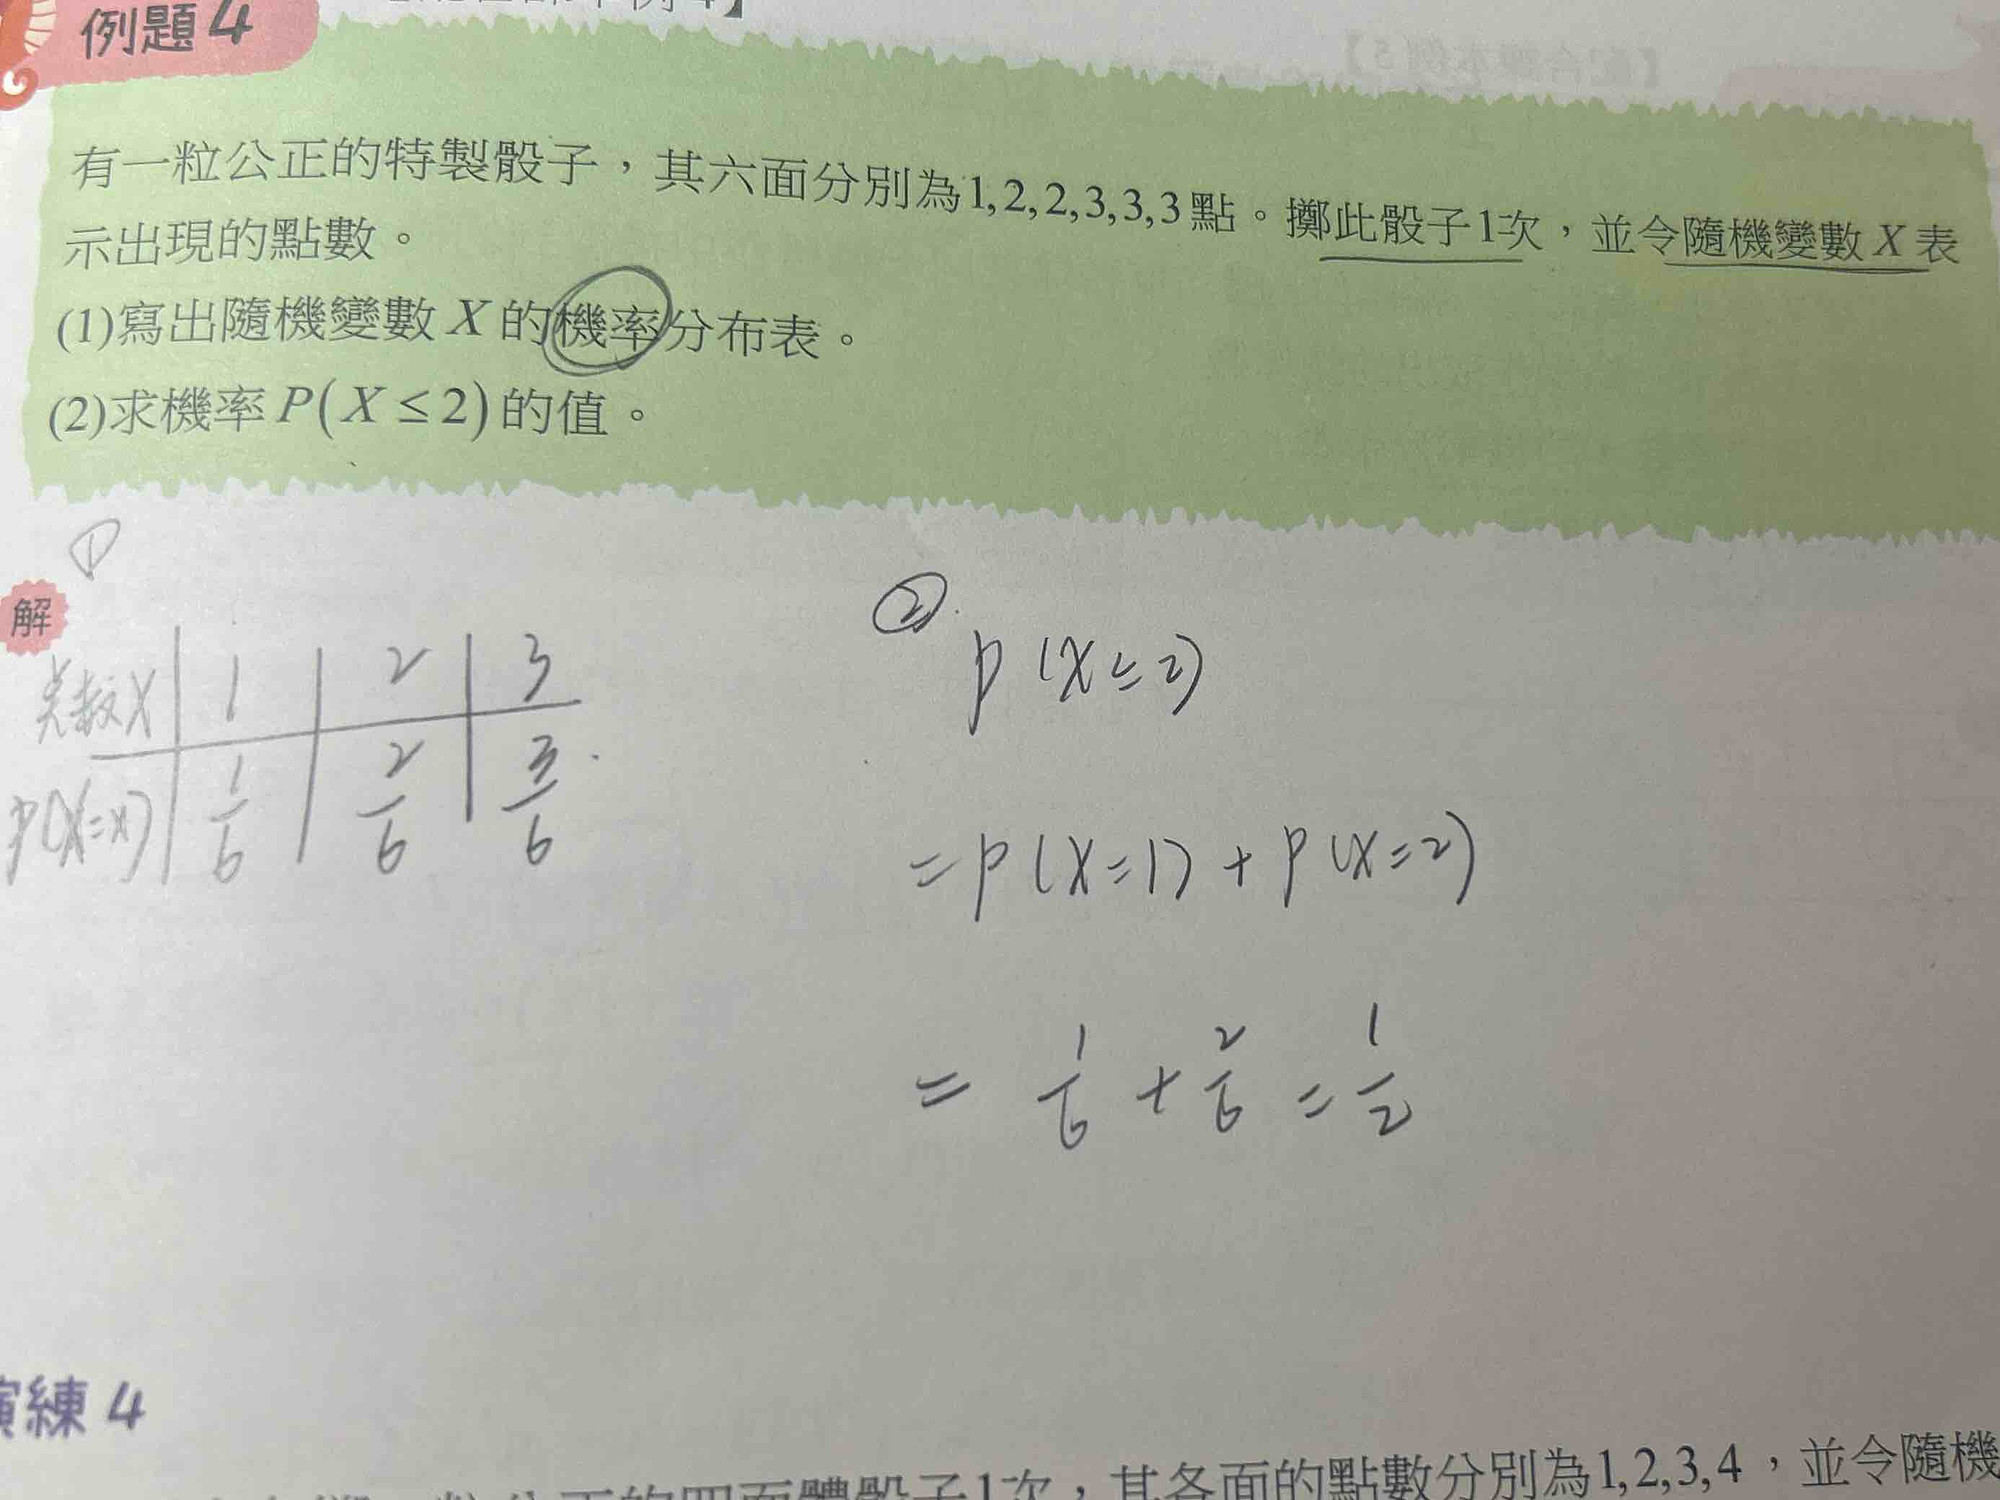 例題4
有一粒公正的特製骰子，其六面分別為1,2,2,3,3,3點。擲此骰子1次，並令隨機變數X表
示出現的點數。
(1)寫出隨機變數X的機率分布表。
(2)求機率P(X≤2)的值。
①
解
点数X | 1 | 2 | 3
P(X=x) | 1/6 | 2/6 | 3/6
②
P(X≤2)
=P(X=1)+P(X=2)
= 1/6 + 2/6 = 1/2
演練4
四面體骰子1次，其各面的點數分別為1,2,3,4，並令隨機